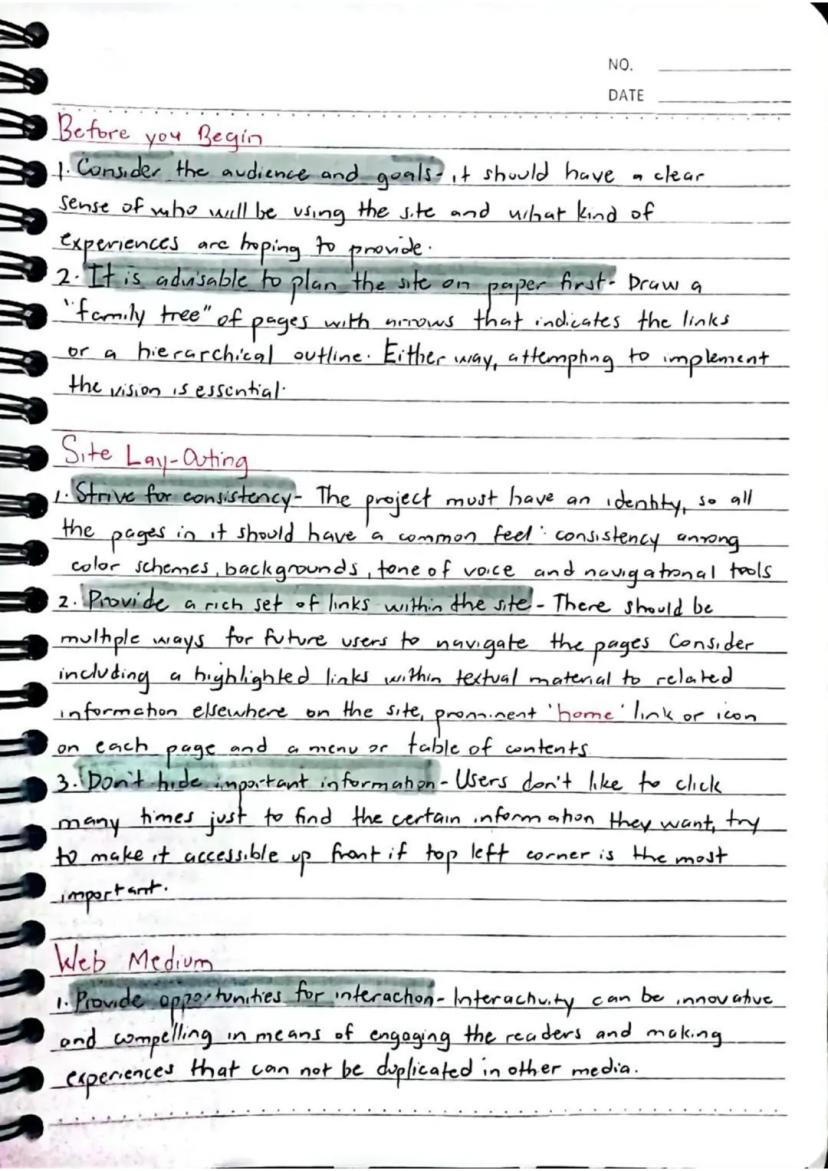 NO.
DATE
Before you Begin
1. Consider the audience and goals- it should have a clear
sense of who will be using the site and what kind of
experiences are hoping to provide.
2. It is advisable to plan the site on paper first- Draw a
"family tree" of pages with arrows that indicates the links
or a hierarchical outline. Either way, attempting to implement
the vision is essential.
Site Lay-Outing
1. Strive for consistency- The project must have an identity, so all
the pages in it should have a common feel: consistency among
color schemes, backgrounds, tone of voice and navigational tools
2. Provide a rich set of links within the site- There should be
multiple ways for future users to navigate the pages Consider
including a highlighted links within textual material to related
information elsewhere on the site, prominent 'home' link or icon
on each page and a menu or table of contents
3. Don't hide important information- Users don't like to click
many times just to find the certain information they want, try
to make it accessible up front if top left corner is the most
important.
Web Medium
1. Provide opportunities for interaction- Interactivity can be innovative
and compelling in means of engaging the readers and making
experiences that can not be duplicated in other media.